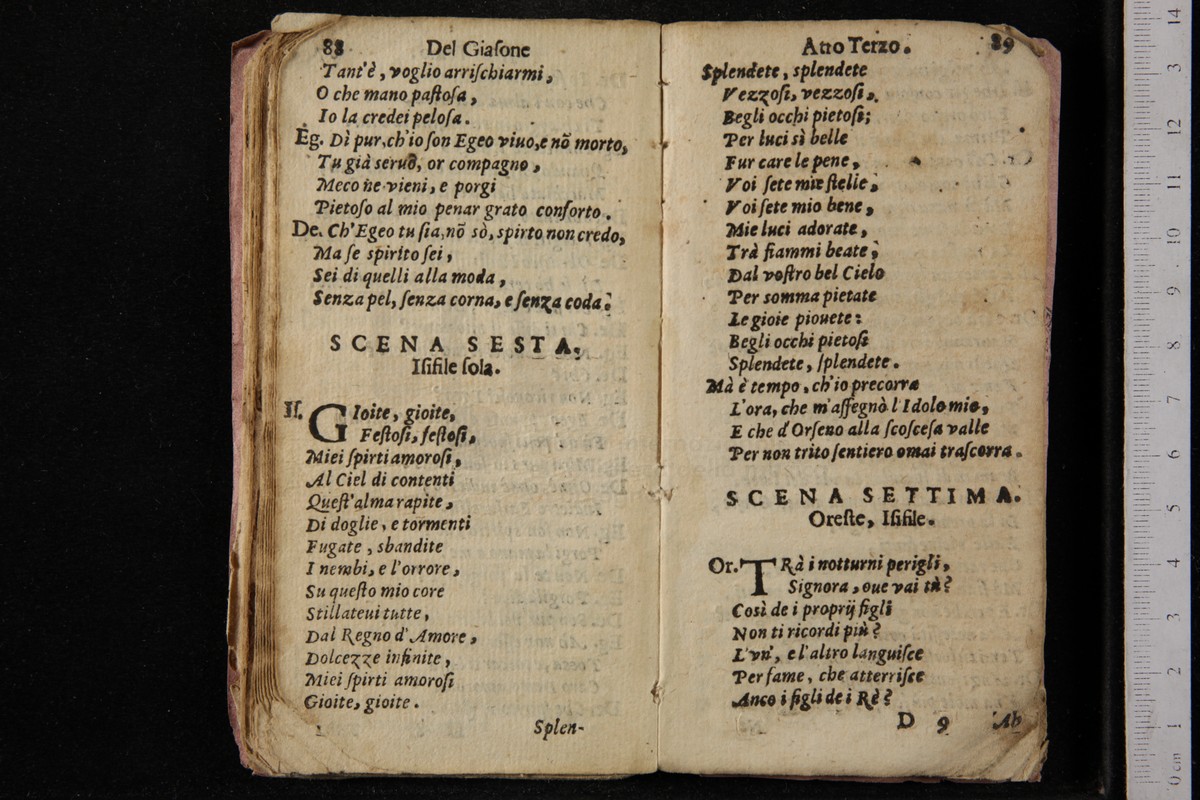 88 Del Giaſone
Tant'è, voglio arriſchiarmi,
O che mano paſtoſa,
Io la credei peloſa.
Eg. Dì pur, ch'io ſon Egeo viuo, e nõ morto,
Tu già seruo, or compagno,
Meco ne vieni, e porgi
Pietoſo al mio penar grato conforto.
De. Ch'Egeo tu ſia, nõ sò, spirto non credo,
Ma ſe spirito ſei,
Sei di quelli alla moda,
Senza pel, ſenza corna, e ſenza coda.
SCENA SESTA,
Iſifile ſola.
Iſ. GIoite, gioite,
Feſtoſi, feſtoſi,
Miei ſpirti amoroſi,
Al Ciel di contenti
Queſt'alma rapite,
Di doglie, e tormenti
Fugate, sbandite
I nembi, e l'orrore,
Su queſto mio core
Stillateui tutte,
Dal Regno d'Amore,
Dolcezze infinite,
Miei ſpirti amoroſi
Gioite, gioite.
Splen-
Atto Terzo. 89
Splendete, splendete
Vezzoſi, vezzoſi,
Begli occhi pietoſi;
Per luci sì belle
Fur care le pene,
Voi ſete mie ſtelle,
Voi ſete mio bene,
Mie luci adorate,
Trà fiammi beate,
Dal voſtro bel Cielo
Per somma pietate
Le gioie piouete:
Begli occhi pietoſi
Splendete, ſplendete.
Mà è tempo, ch'io precorra
L'ora, che m'aſſegnò l'Idolo mio,
E che d'Orſeno alla ſcoſceſa valle
Per non trito ſentiero omai traſcorra.
SCENA SETTIMA.
Oreſte, Iſifile.
Or. TRà i notturni perigli,
Signora, oue vai tù?
Così de i proprij figli
Non ti ricordi più?
L'vn', e l'altro languiſce
Per fame, che atterriſce
Anco i figli de i Rè?
D 9 Ah